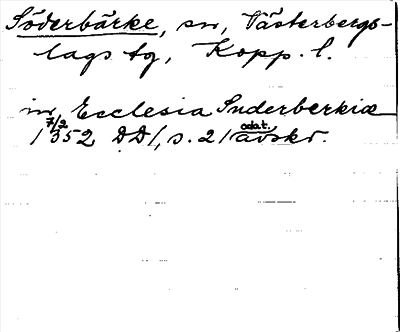 Söderbärke, sn, Västerbergs-
lags tg, Kopp. l.
in Ecclesia Suderberkiæ
7/2 1352 DD1, s. 21 odat. avskr.